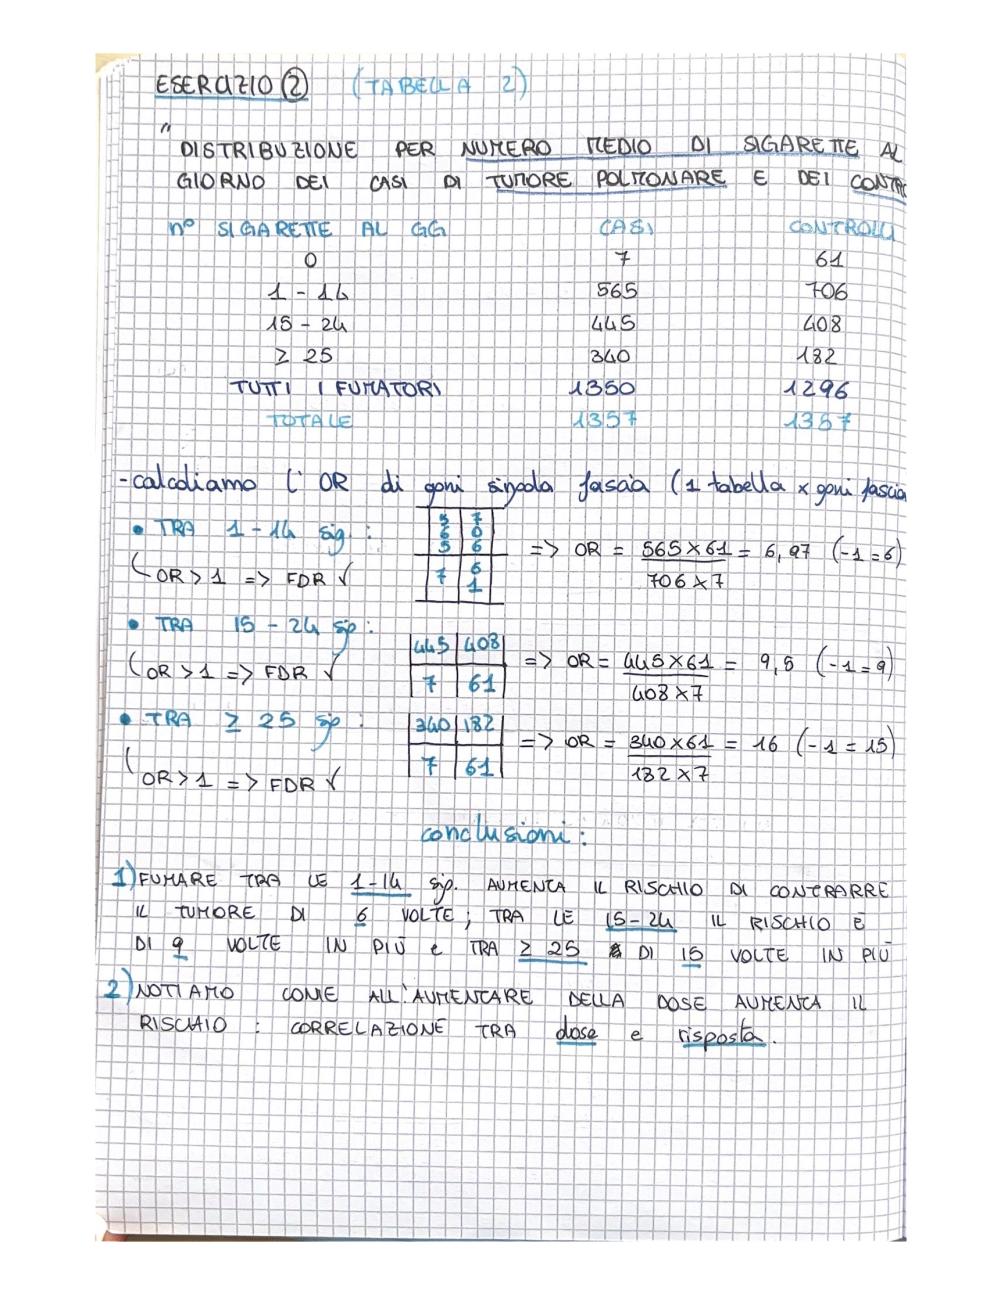 ESERCIZIO 2 (TABELLA 2)
"DISTRIBUZIONE PER NUMERO MEDIO DI SIGARETTE AL
GIORNO DEI CASI DI TUMORE POLMONARE E DEI CONTRO
n° SIGARETTE AL GG CASI CONTROLLI
0 7 61
1-14 565 706
15-24 445 408
≥ 25 340 182
TUTTI I FUMATORI 1350 1296
TOTALE 1357 1357
- calcoliamo l'OR di ogni singola fascia (1 tabella x ogni fascia
• TRA 1-14 sig.: 565 706 => OR = 565x61 = 6,97 (-1=6)
OR>1 => FDR ✓ 7 61 706x7
• TRA 15-24 sig: 445 408 => OR = 445x61 = 9,5 (-1=9)
OR>1 => FDR ✓ 7 61 408x7
• TRA ≥ 25 sig: 340 182 => OR = 340x61 = 16 (-1=15)
OR>1 => FDR ✓ 7 61 182x7
conclusioni:
1) FUMARE TRA LE 1-14 sig. AUMENTA IL RISCHIO DI CONTRARRE
IL TUMORE DI 6 VOLTE; TRA LE 15-24 IL RISCHIO È
DI 9 VOLTE IN PIÙ e TRA ≥ 25 DI 15 VOLTE IN PIÙ
2) NOTIAMO COME ALL'AUMENTARE DELLA DOSE AUMENTA IL
RISCHIO : CORRELAZIONE TRA dose e risposta.